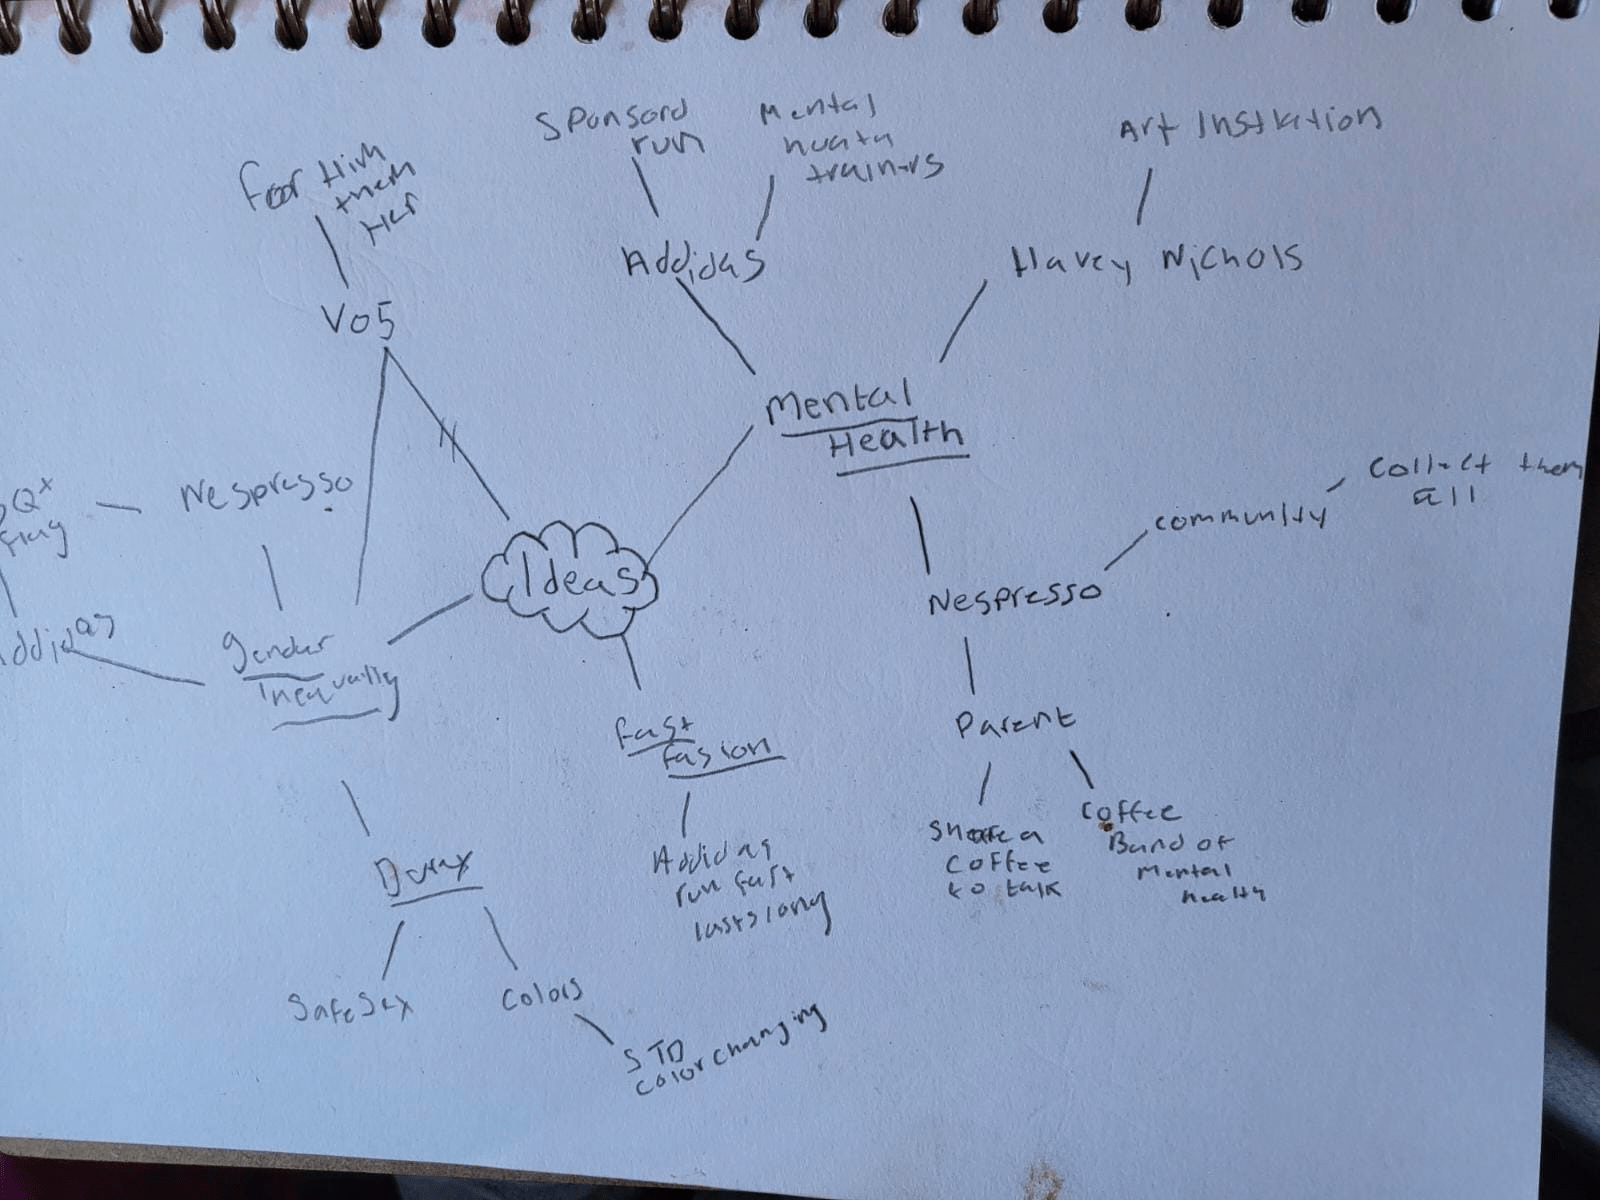 Sponsord
run
Mental
huath
trainers
Art Instlation
Foor Him
them
Her
Addidas
Havey Nichols
Vo5
Mental
Health
Collect them
all
Nespresso
Qx
flag
community
Ideas
Nespresso
Addidas
gender
Inequality
Parent
fast
fasion
Share a
coffee
to talk
Coffee
Band of
Mental
health
Durex
Addidas
run fast
lasts long
Safe Sex
Colors
STD
color changing